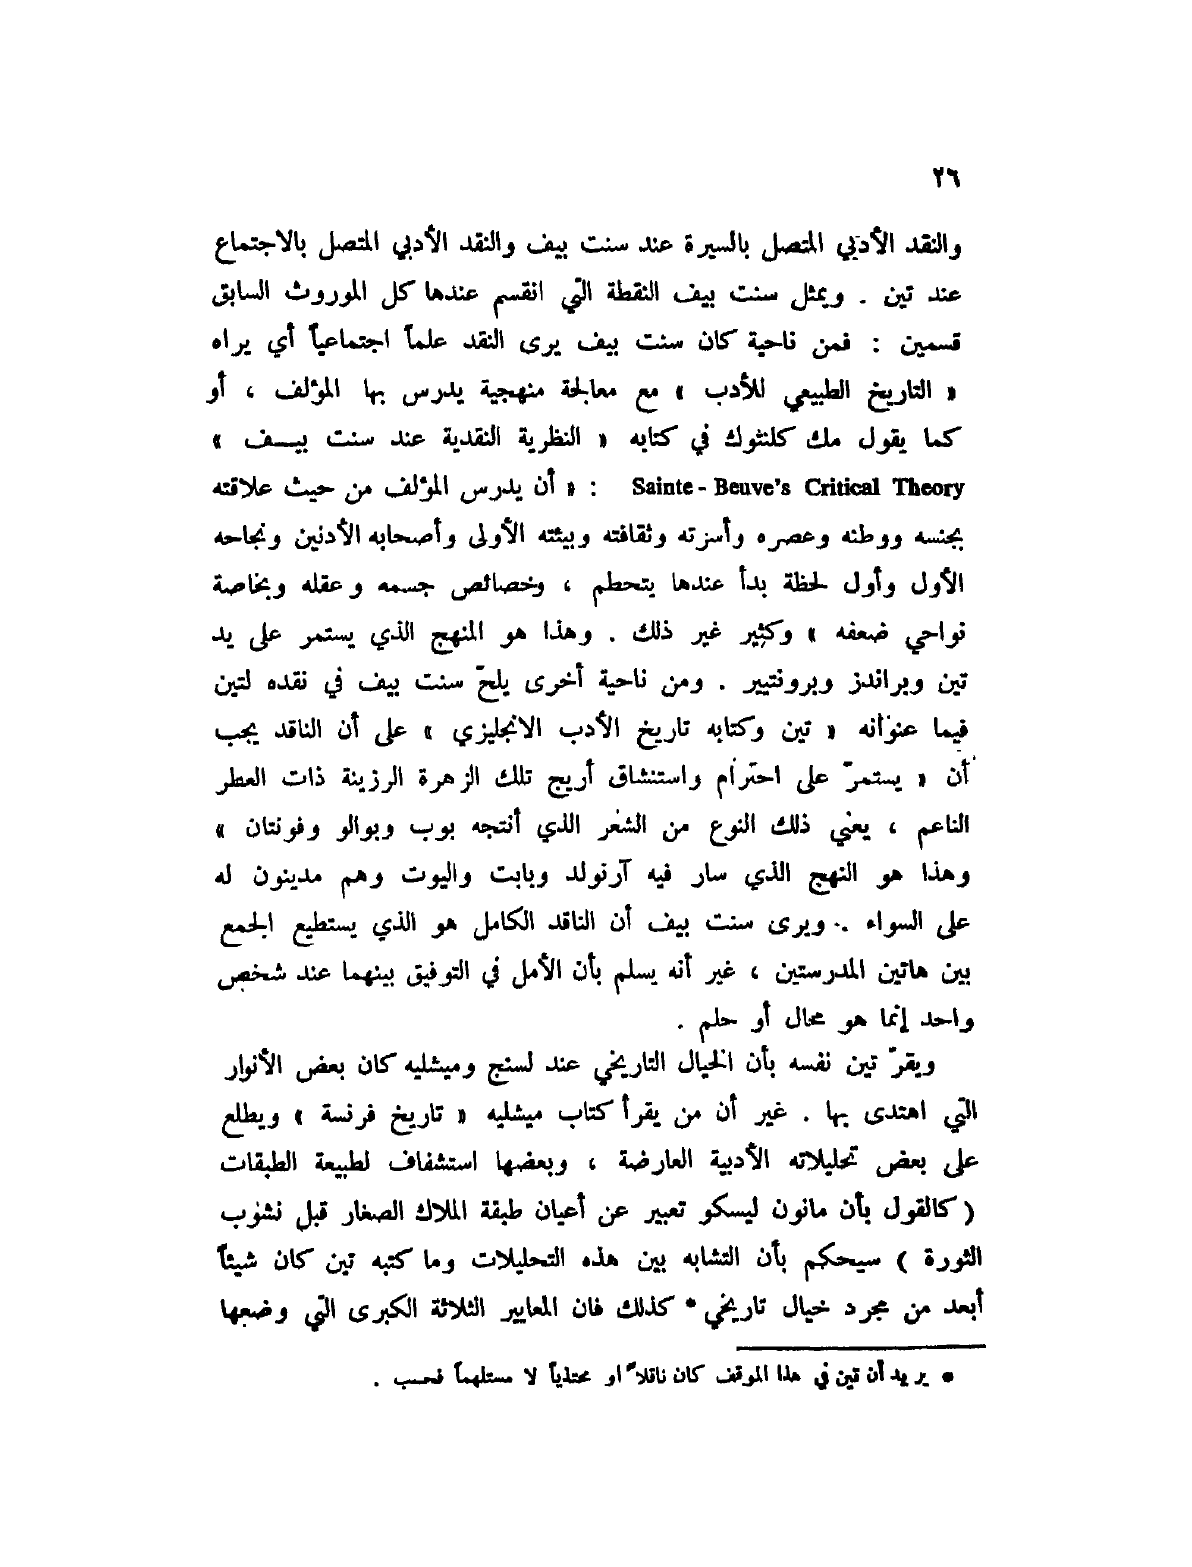 ٢٦
والنقد الأدبي المتصل بالسيرة عند سنت بيف والنقد الأدبي المتصل بالاجتماع
عند تين . ويمثل سنت بيف النقطة التي انقسم عندها كل الموروث السابق
قسمين : فمن ناحية كان سنت بيف يرى النقد علماً اجتماعياً أي يراه
« التاريخ الطبيعي للأدب » مع معالجة منهجية يدرس بها المؤلف ، أو
كما يقول مك كلنثوك في كتابه « النظرية النقدية عند سنت بيـــف »
Sainte - Beuve's Critical Theory : « أن يدرس المؤلف من حيث علاقته
بجنسه ووطنه وعصره وأسرته وثقافته وبيئته الأولى وأصحابه الأدنين ونجاحه
الأول وأول لحظة بدأ عندها يتحطم ، وخصائص جسمه وعقله وبخاصة
نواحي ضعفه » وكثير غير ذلك . وهذا هو المنهج الذي يستمر على يد
تين وبراندز وبرونتيير . ومن ناحية أخرى يلحّ سنت بيف في نقده لتين
فيما عنوانه « تين وكتابه تاريخ الأدب الانجليزي » على أن الناقد يجب
أن « يستمرّ على احترام واستنشاق أريج تلك الزهرة الرزينة ذات العطر
الناعم ، يعني ذلك النوع من الشعر الذي أنتجه بوب وبوالو وفونتان »
وهذا هو النهج الذي سار فيه آرنولد وبابت واليوت وهم مدينون له
على السواء . ويرى سنت بيف أن الناقد الكامل هو الذي يستطيع الجمع
بين هاتين المدرستين ، غير أنه يسلم بأن الأمل في التوفيق بينهما عند شخص
واحد إنما هو محال أو حلم .
ويقرّ تين نفسه بأن الخيال التاريخي عند لسنج وميشليه كان بعض الأنوار
التي اهتدى بها . غير أن من يقرأ كتاب ميشليه « تاريخ فرنسة » ويطلع
على بعض تحليلاته الأدبية العارضة ، وبعضها استشفاف لطبيعة الطبقات
( كالقول بأن مانون ليسكو تعبير عن أعيان طبقة الملاك الصغار قبل نشوب
الثورة ) سيحكم بأن التشابه بين هذه التحليلات وما كتبه تين كان شيئاً
أبعد من مجرد خيال تاريخي * كذلك فان المعايير الثلاثة الكبرى التي وضعها
* يريد أن تين في هذا الموقف كان ناقلاً او محتذياً لا مستلهماً فحسب .